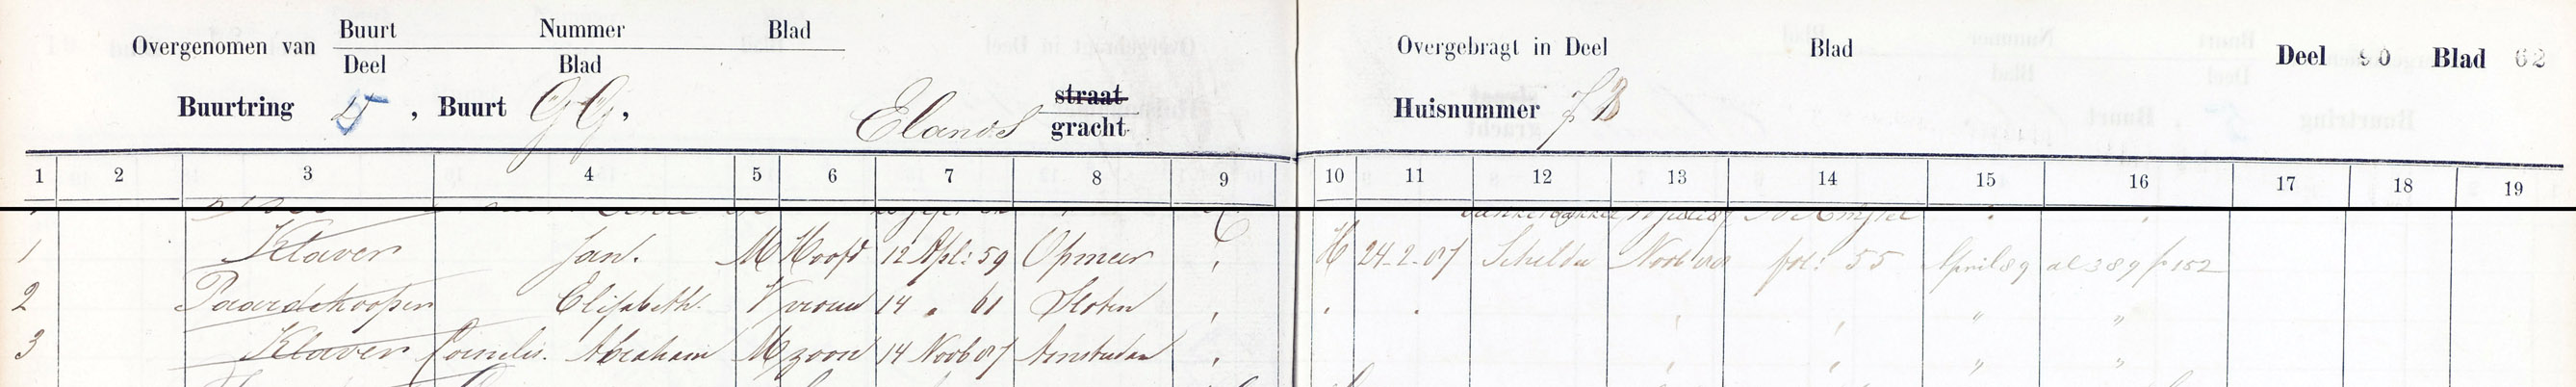 Overgenomen van Buurt Nummer Blad
Deel Blad
Buurtring , Buurt GG, Elands straat
gracht
Overgebragt in Deel Blad Deel 90 Blad 62
Huisnummer 73
1 2 3 4 5 6 7 8 9 10 11 12 13 14 15 16 17 18 19
1 Klaver Jan. M Hoofd 12 Apl: 59 Opmeer " H 24-2-87 Schilder fol: 55 April 89 al 389 fo 152
2 Paardekooper Elisabeth. V vrouw 14 " 61 Sloten " " " " " " "
3 Klaver Cornelis. Abraham M zoon 14 Novb 87 Amsterdam " " " " "